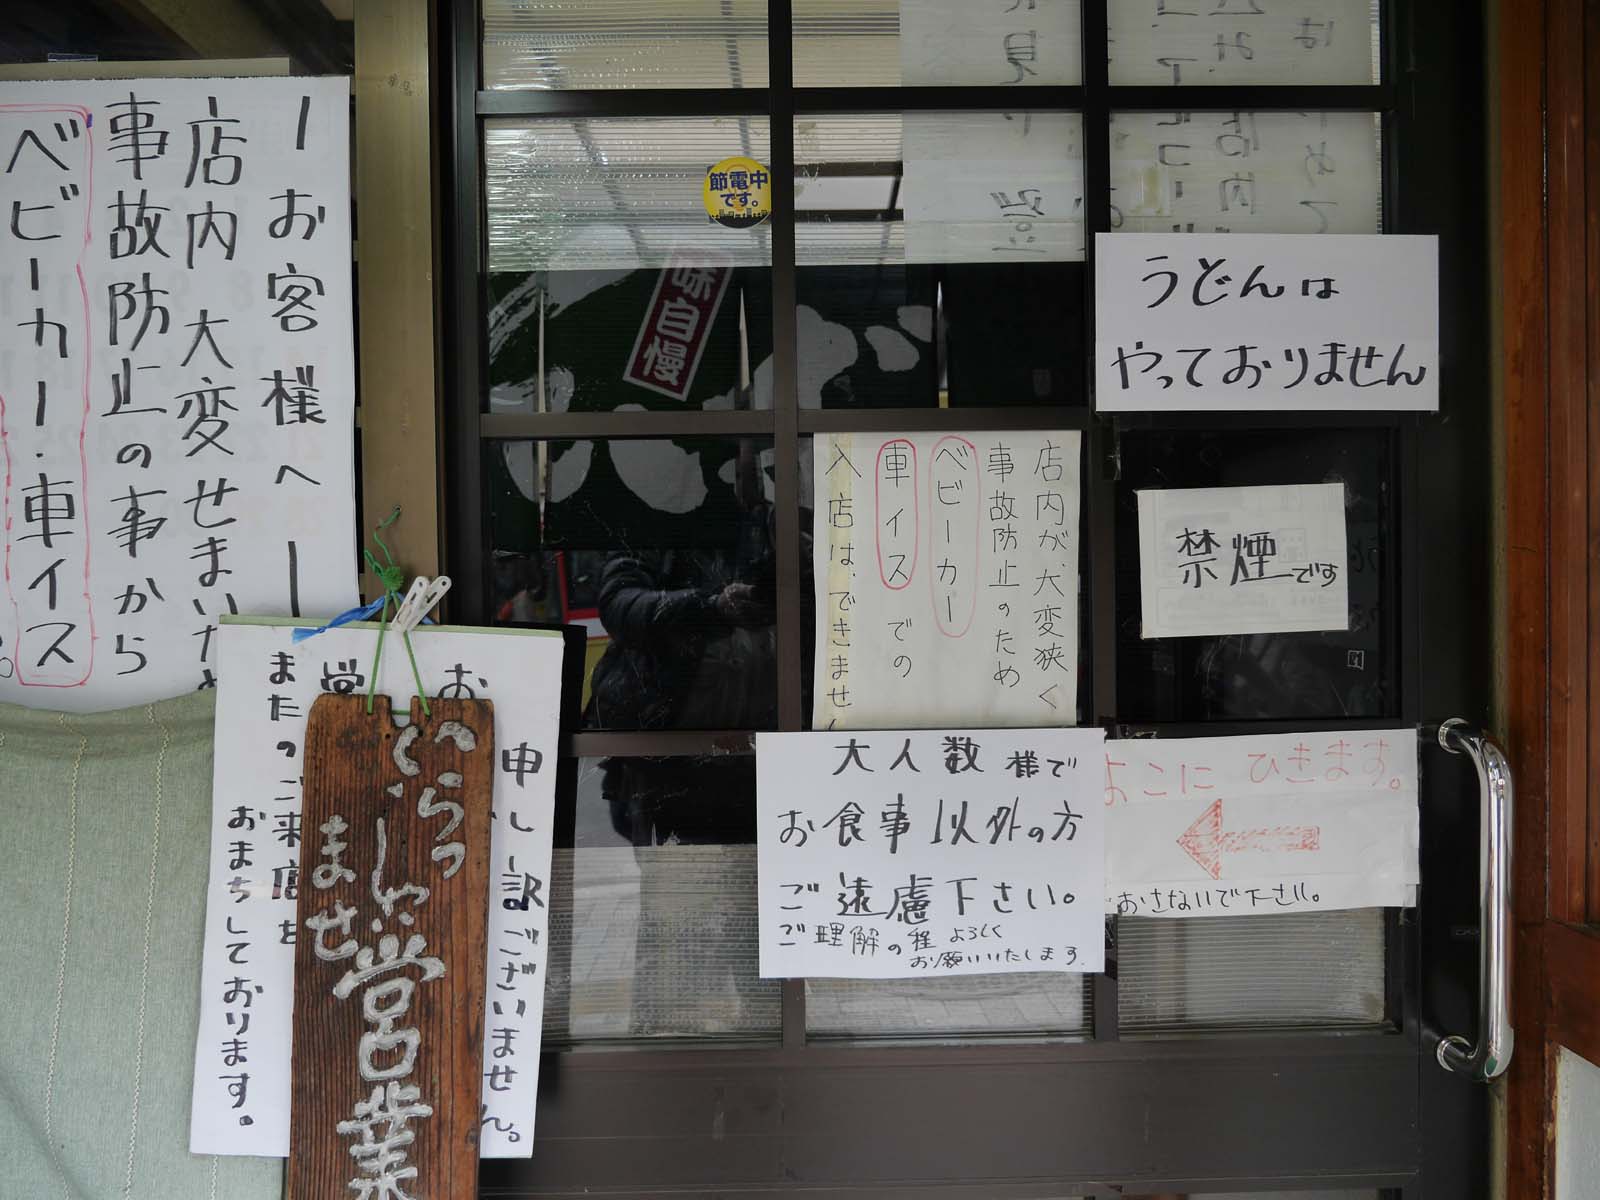 ーお客様へー
店内大変せまいため
事故防止の事から
ベビーカー・車イス
節電中
です。
味自慢
うどんは
やっておりません
店内が、大変狭く
事故防止のため
ベビーカー
車イスでの
入店は、できません
禁煙です
大人数様で
お食事以外の方
ご遠慮下さい。
ご理解の程よろしく
お願いいたします。
よこにひきます。
おさないで下さい。
申し訳ございません。
またのご来店を
おまちしております。
いらっ
しゃい
ませ
営業